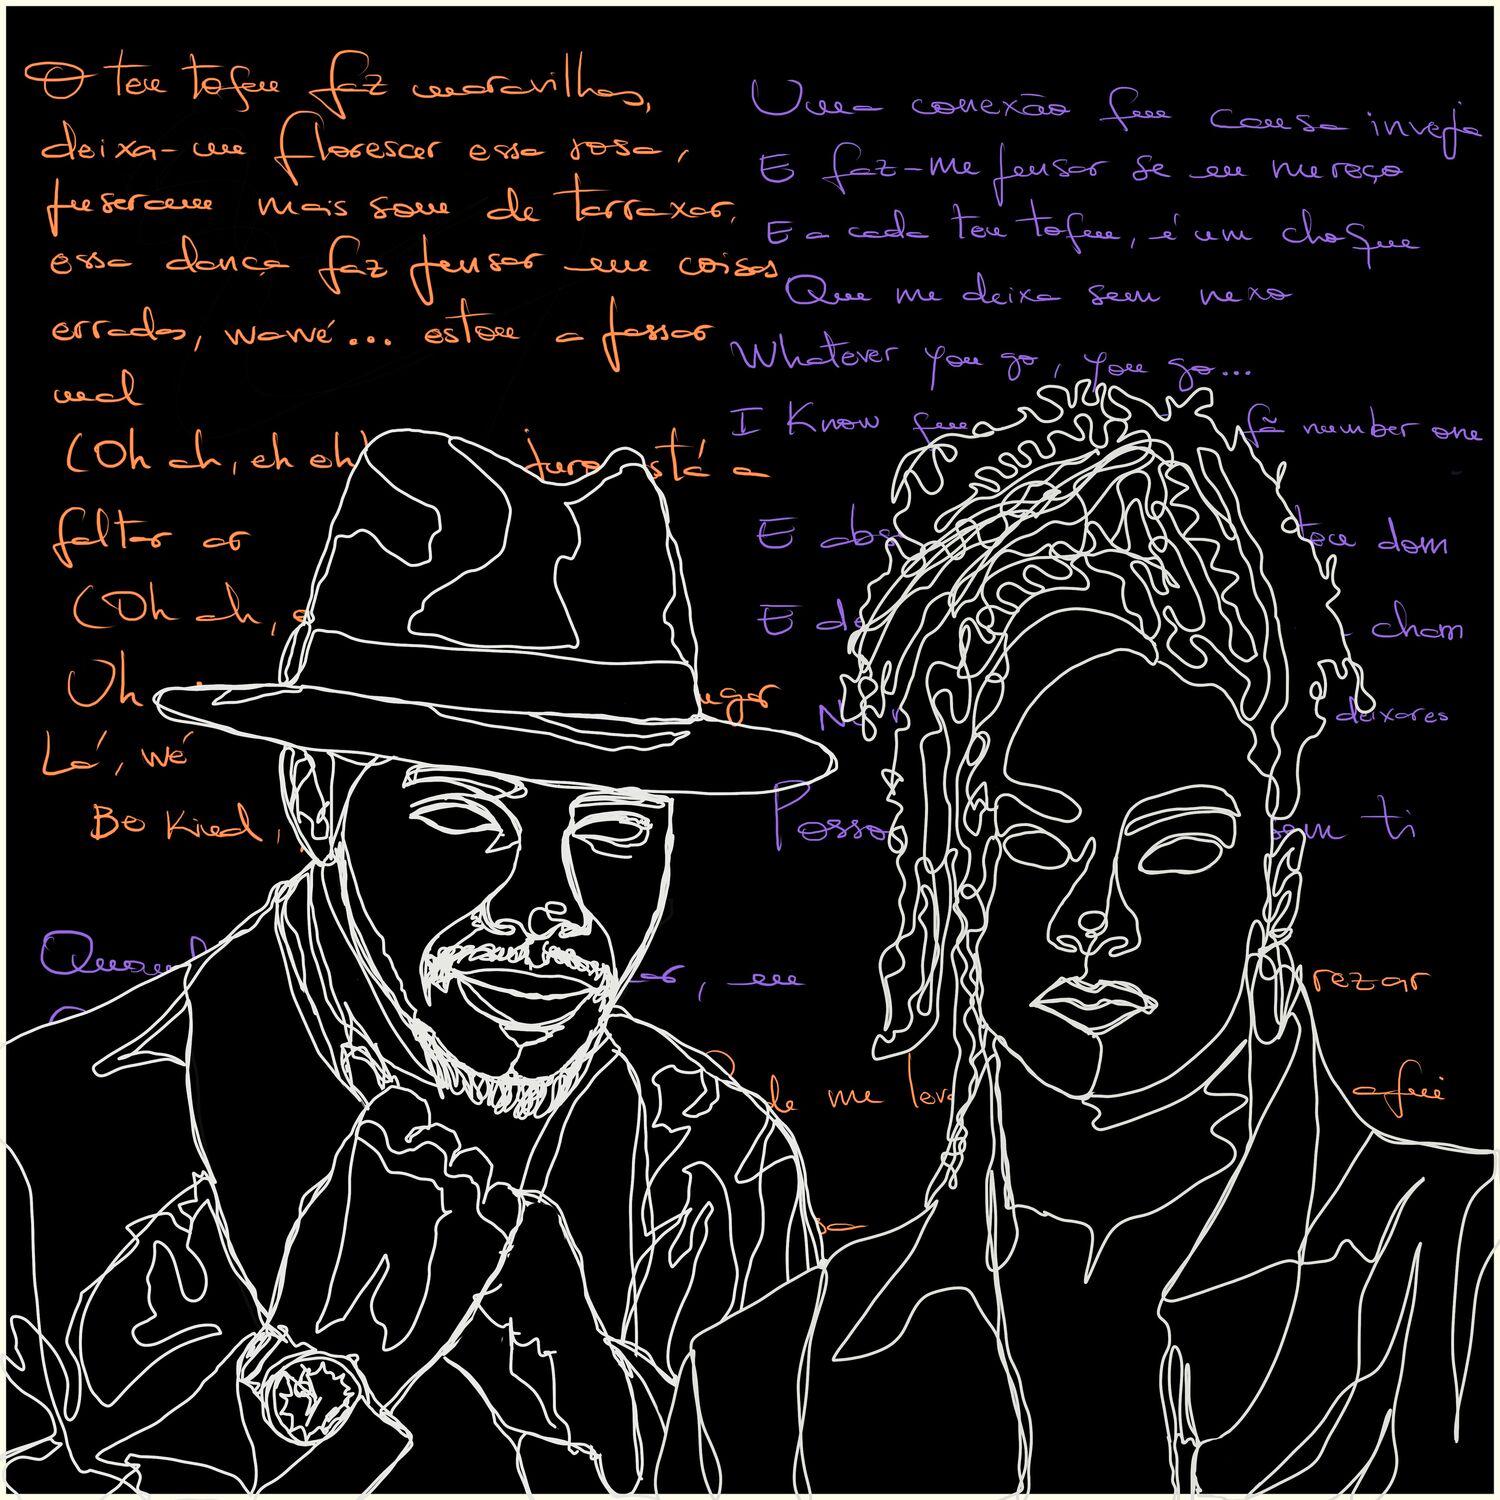 O teu toque faz maravilhas,
deixa-me florescer essa rosa,
puseram mais som de tarraxar,
essa dança faz pensar em coisas
erradas, wawé... estou a passar
mal
(Oh ah, eh eh) juro está a
faltar ar
(Oh ah,
Uh
Lá, wé
Bo kied,
Uma conexão que causa inveja
E faz-me pensar se eu mereço
E a cada teu toque, é um choque
Que me deixa sem nexo
Whatever you go, you go...
I Know que fã number one
E teu dom
E cham
deixares
Posso sem ti
ar, eu
rezar
de me aqui